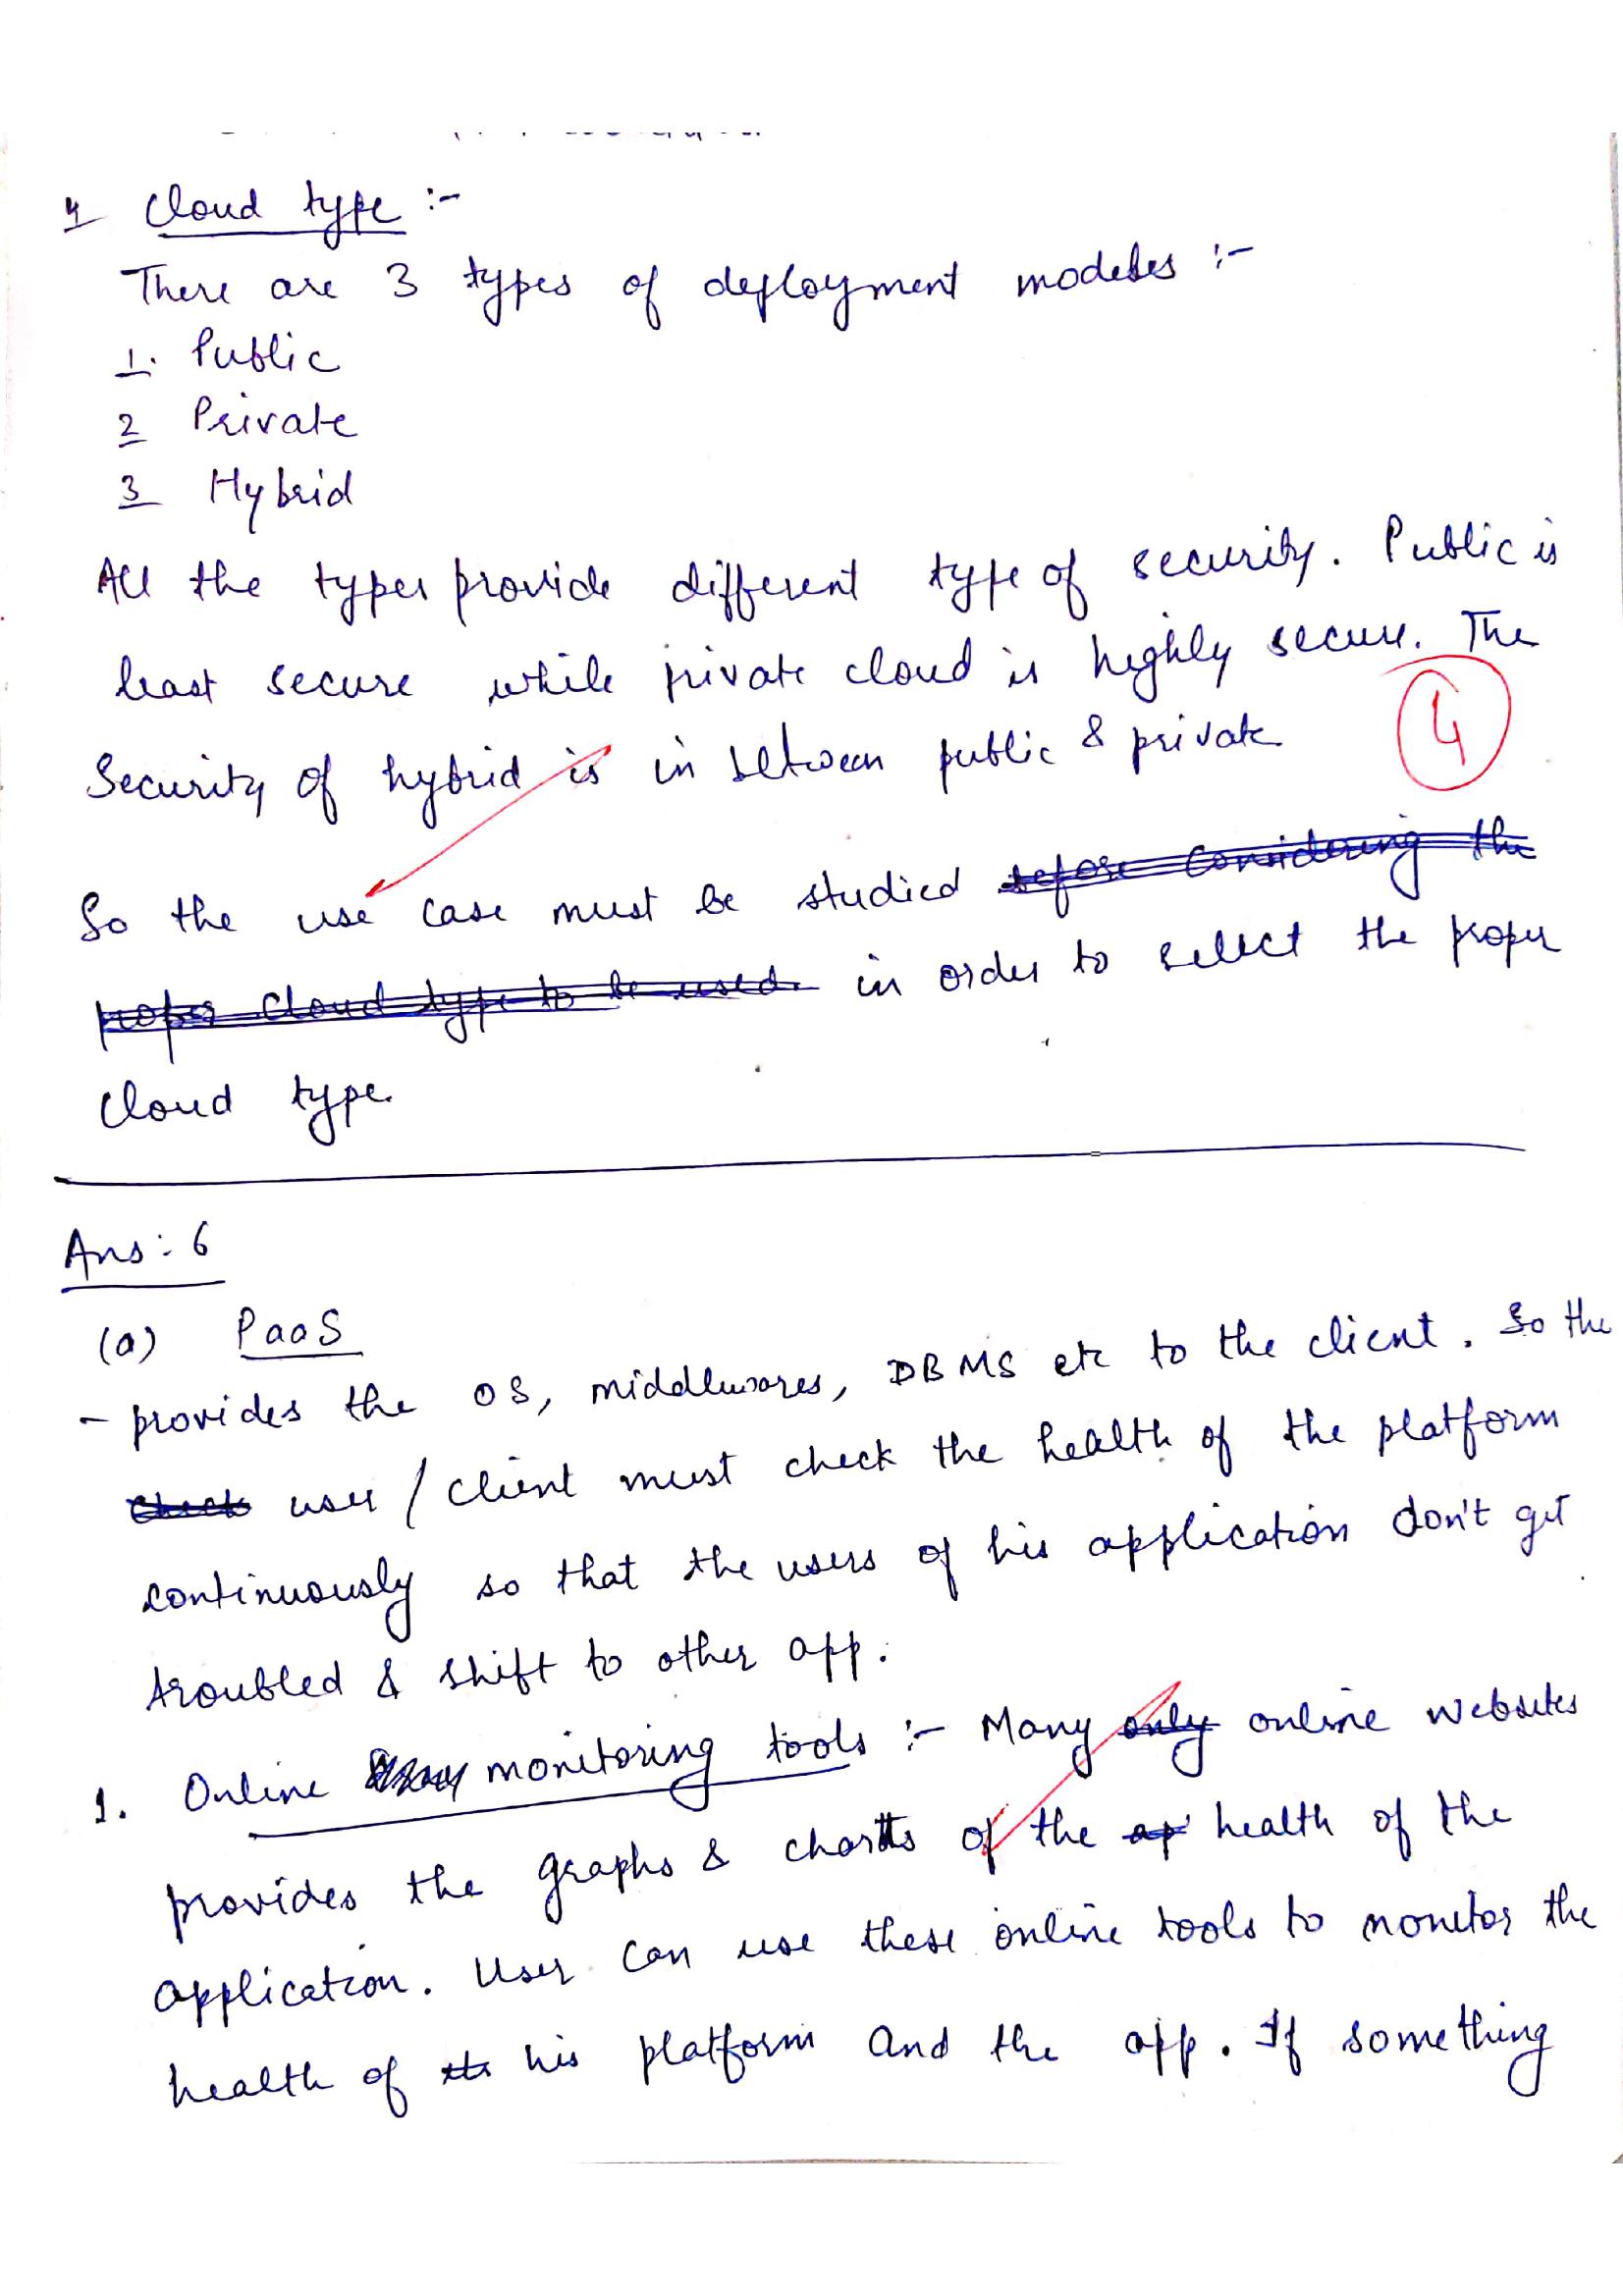 4 Cloud type :-
There are 3 types of deployment modeles :-
1. Public
2 Private
3 Hybrid
All the types provide different type of security. Public is
least secure while private cloud is highly secure. The
4
Security of hybrid is in between public & private
So the use case must be studied before considering the
proper cloud type to be used. in order to select the proper
Cloud type.
Ans: 6
(a) PaaS
- provides the OS, middlewares, DBMS etc to the client. So the
check user / client must check the health of the platform
continuously so that the users of his application don't get
troubled & shift to other app.
1. Online monitoring tools :- Many only online websites
provides the graphs & charts of the ap health of the
application. User can use these online tools to monitor the
health of the his platform and the app. If something